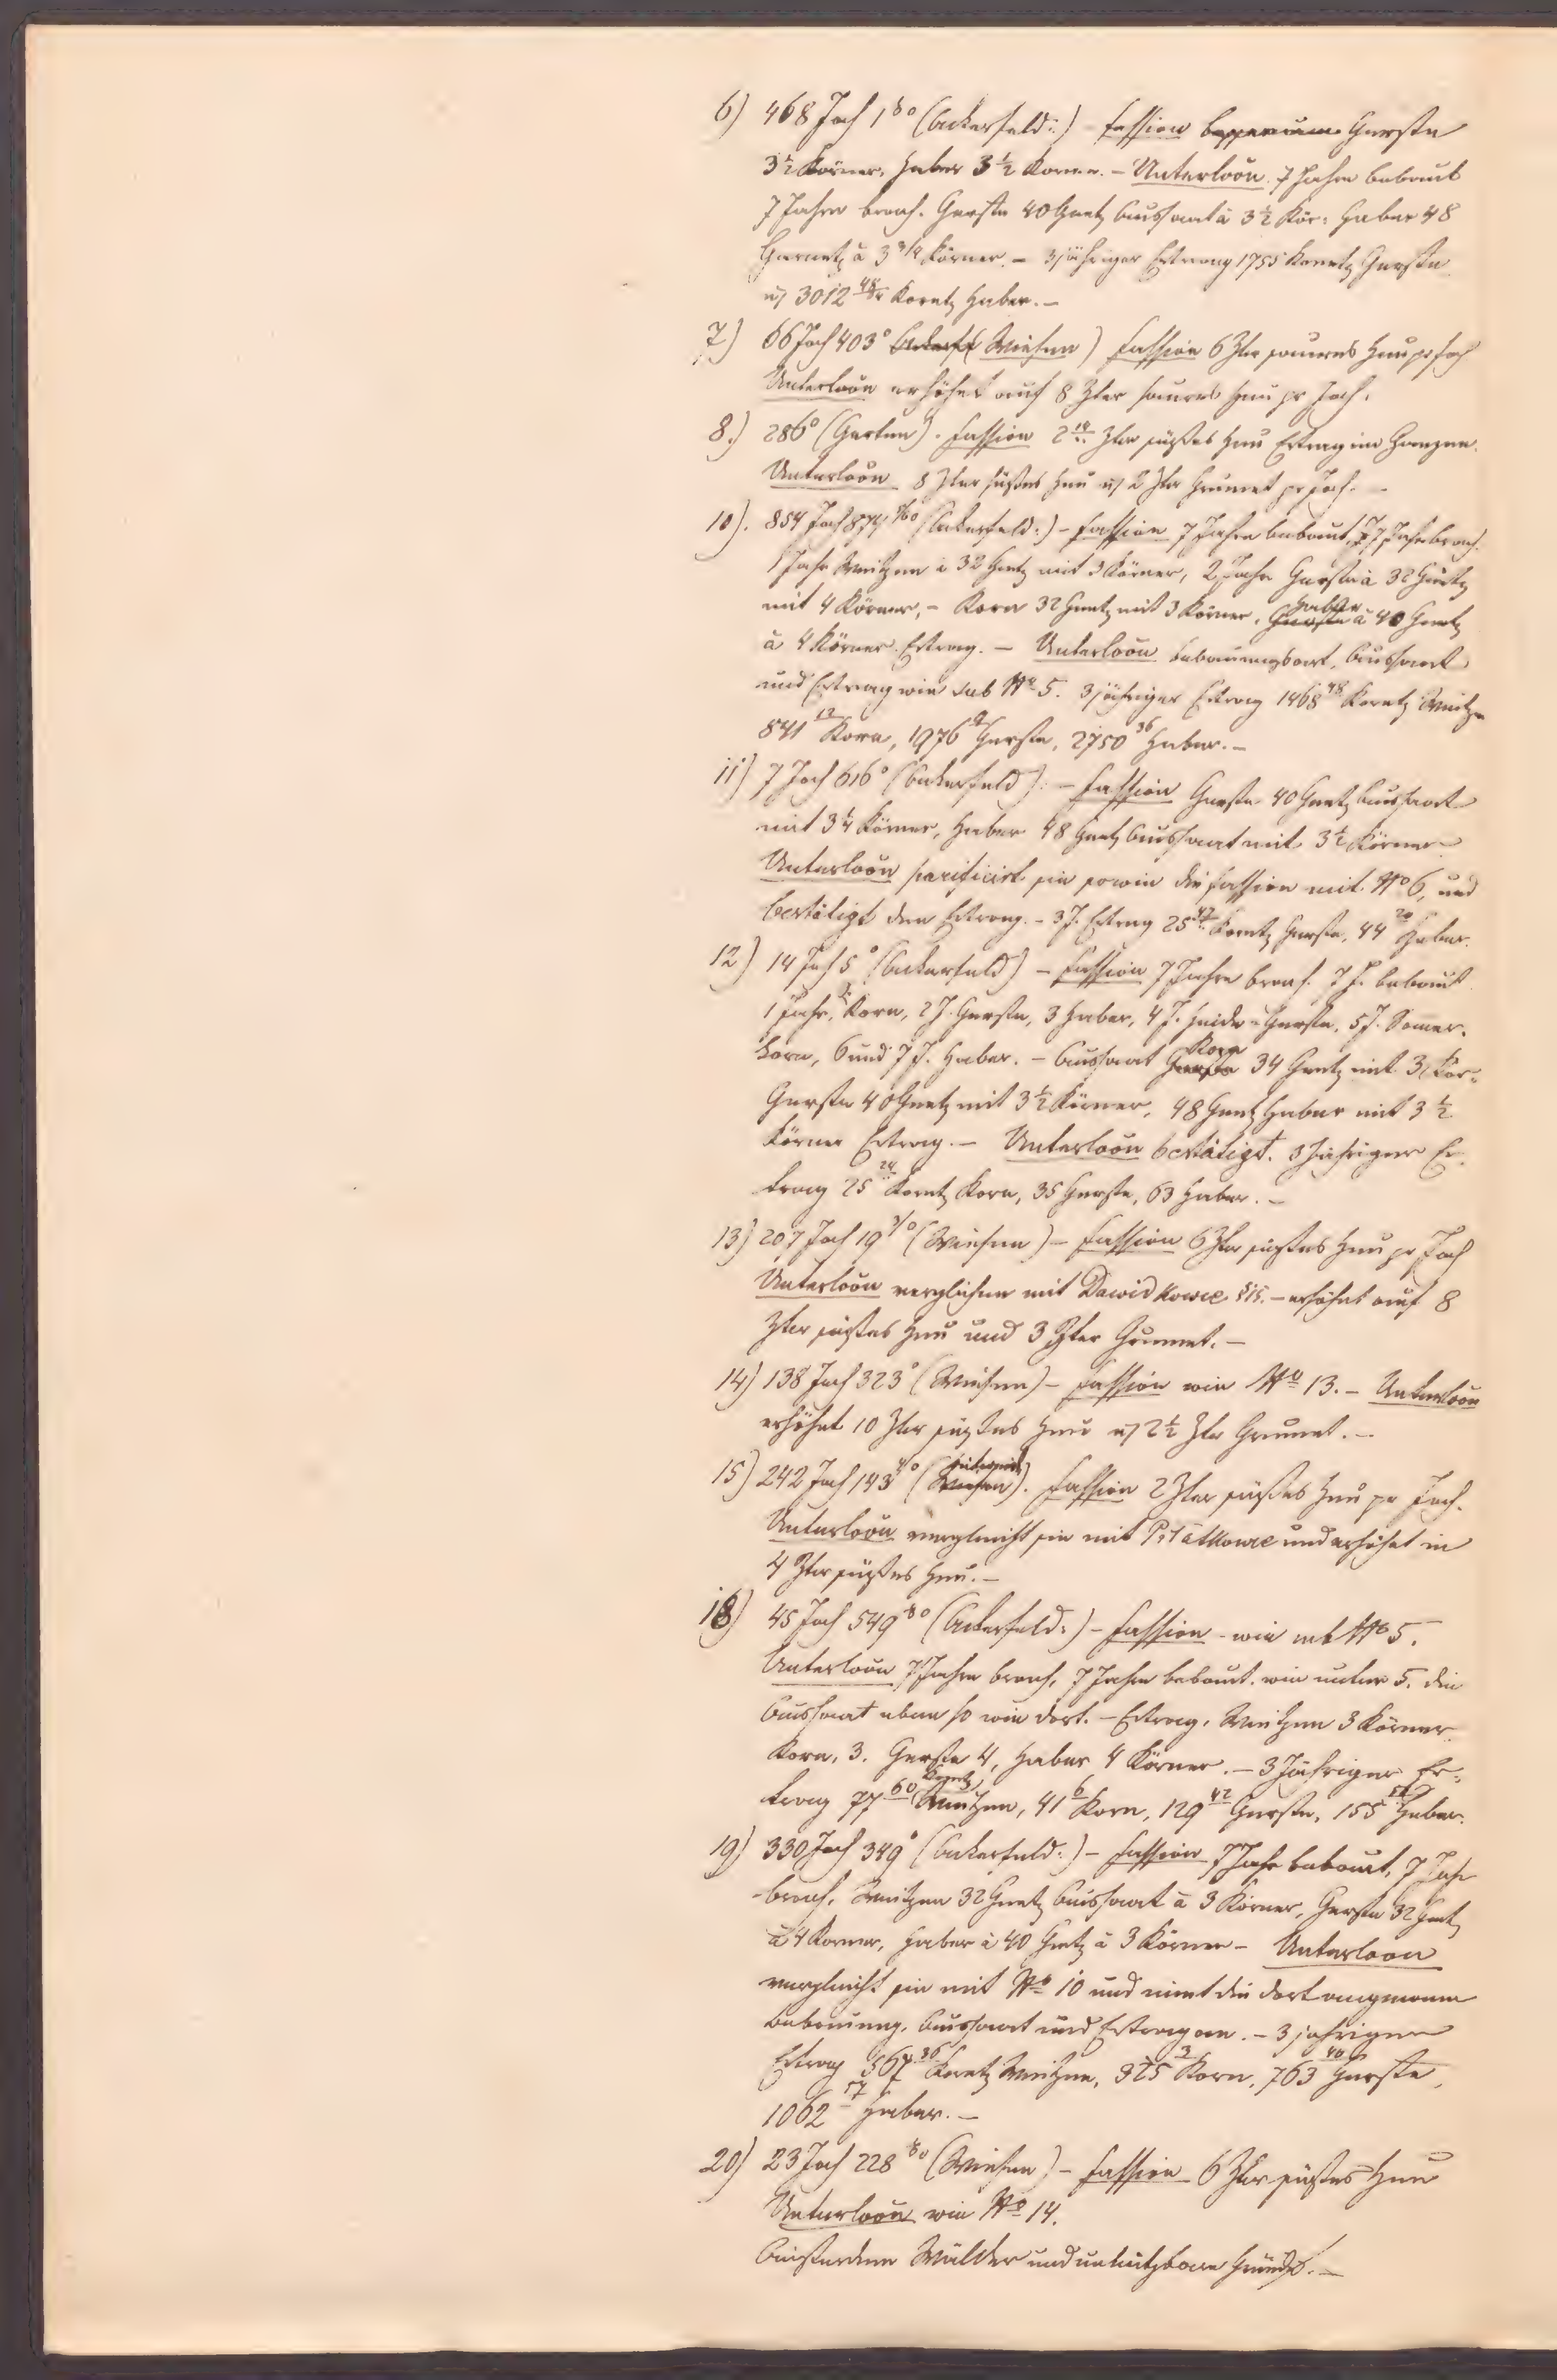 6) 468 Joch 1 (Ackerfeld:) – Fassion Gerste
3½ Körner, Haber 3½ Körner. – Unterloõn 7 Jahre bebaut
7 Jahre brach. Gerste 40 Gnetz Aussaat à 3½ Kör: Haber 48
Garnetz à 3 3/4 Körner. – 3jähriger Ertrag 1755 Koretz Gerste
u/ 3012 48 Koretz Haber. –
7) 66 Joch 403° (Wiesen) Fassion 6 Ztr saueres Heu pr Joch
Unterloõn erhöhet auf 8 Ztr saures Heu pr Joch.
8.) 286° (Garten). Fassion 2 Ztr süßes Heu Ertrag im Ganzen.
Unterloõn 8 Ztr süßes Heu u/ 2 Ztr Grumet pr Joch. –
10). 854 Joch 874 (Ackerfeld:) – Fassion 7 Jahre bebaut, 7 Jahr brach.
1 Jahr Weitzen à 32 Gnetz mit 3 Körner, 2 Jahr Gerste à 32 Gnetz
mit 4 Körner, – Korn 32 Gnetz mit 3 Körner, Haber à 40 Gnetz
à 4 Körner Ertrag. – Unterloõn Bebauungsart, Aussaat
und Ertrag wie sub No 5. 3jähriger Ertrag 1468 48 Koretz Weitzen
841 12 Korn, 1976 Gerste, 2750 36 Haber. –
11) 7 Joch 616° (Ackerfeld): – Fassion Gerste 40 Gnetz Aussaat
mit 3¼ Körner, Haber 48 Gnetz Aussaat mit 3½ Körner
Unterloõn parificirt sie sowie die Fassion mit No 6, und
bestätigt den Ertrag. – 3 J. Ertrag 25 Koretz Gerste, 44 20 Haber.
12) 14 Joch 5° (Ackerfeld) – Fassion 7 Jahre brach. 7 J. bebaut
1 Jahr, Korn, 2 J. Gerste, 3 Haber, 4 J. Heide-Gerste, 5 J. Somer-
korn, 6 und 7 J. Haber. – Aussaat Korn 34 Gnetz mit 3 Kör-
Gerste 40 Gnetz mit 3½ Körner, 48 Gnetz Haber mit 3½
Körner Ertrag. – Unterloõn bestätigt. 3jähriger Er-
trag 25 24 Koretz Korn, 35 Gerste, 63 Haber. –
13) 207 Joch 19 (Wiesen) – Fassion 6 Ztr süßes Heu pr Joch
Unterloõn verglichen mit Dawidkowce – erhöhet auf 8
Ztr süßes Heu und 3 Ztr Grumet. –
14) 138 Joch 323° (Wiesen) – Fassion wie No 13. – Unterloõn
erhöhet 10 Ztr süßes Heu u/ 2½ Ztr Grumet. –
15) 242 Joch 143 (Hutweid). Fassion 2 Ztr süßes Heu pr Joch.
Unterloõn vergleicht sie mit und erhöhet in
4 Ztr süßes Heu. –
18) 45 Joch 549 (Ackerfeld:) – Fassion – wie sub No 5.
Unterloõn 7 Jahre brach, 7 Jahre bebaut. wie unter 5. die
Aussaat eben so wie dort. – Ertrag, Weitzen 3 Körner
Korn, 3. Gerste 4, Haber 4 Körner. – 3jähriger Er-
trag 77 60 Koretz Weitzen, 41 6 Korn, 129 42 Gerste, 155 Haber.
19) 330 Joch 349° (Ackerfeld:) – Fassion 7 Jahr bebaut, 7 Jahr
brach, Weitzen 32 Gnetz Aussaat à 3 Körner, Gerste 32 Gnetz
à 4 Korner, Haber à 40 Gnetz à 3 Körner – Unterloon
vergleicht sie mit No 10 und nimt die dort angenome
Bebauung, Aussaat und Ertrag an. – 3jahriger
Ertrag 567 36 Koretz Weitzen, 325 3 Korn, 763 40 Gerste,
1062 57 Haber. –
20) 23 Joch 228 (Wiesen) – Fassion 6 Ztr süßes Heu
Unterloõn wie No 14.
Außerdem Wälder und unnützbare Gründe. –